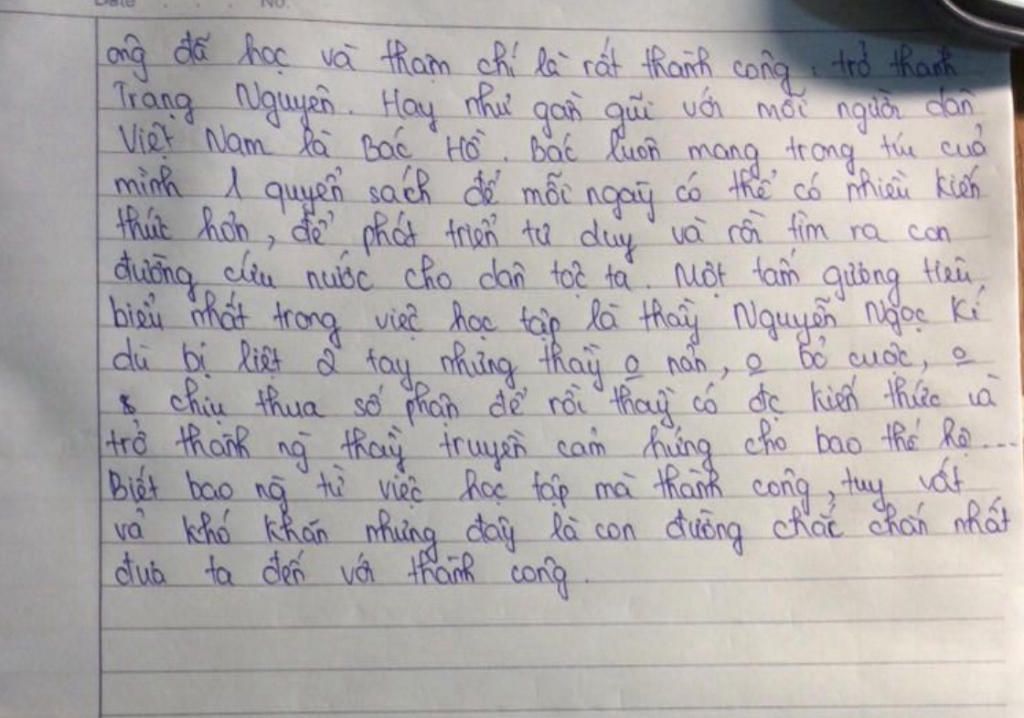 ông đã học và thậm chí là rất thành công, trở thành
Trạng Nguyên. Hay như gần gũi với mỗi người dân
Việt Nam là Bác Hồ. Bác luôn mang trong túi của
mình 1 quyển sách để mỗi ngày có thể có nhiều kiến
thức hơn, để phát triển tư duy và rồi tìm ra con
đường cứu nước cho dân tộc ta. Một tấm gương tiêu
biểu nhất trong việc học tập là thầy Nguyễn Ngọc Kí
dù bị liệt 2 tay nhưng thầy o nản, o bỏ cuộc, o
chịu thua số phận để rồi thầy có đc kiến thức và
trở thành ng thầy truyền cảm hứng cho bao thế hệ...
Biết bao ng từ việc học tập mà thành công, tuy vất
vả khó khăn nhưng đây là con đường chắc chắn nhất
đưa ta đến với thành công.